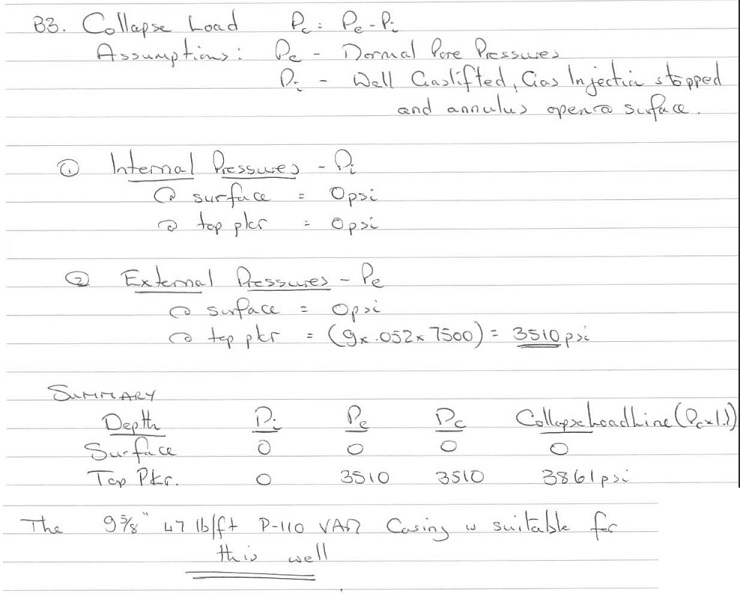 B3. Collapse Load Pc = Pe - Pi
Assumptions: Pe - Normal Pore Pressures
Pi - Well Gaslifted, Gas Injection stopped
and annulus open @ surface.
① Internal Pressures - Pi
@ surface = 0psi
@ top pkr = 0psi
② External Pressures - Pe
@ surface = 0psi
@ top pkr = (9x.052x7500) = 3510psi
SUMMARY
Depth Pi Pe Pc Collapse Load Line (Pcx1.1)
Surface 0 0 0 0
Top Pkr. 0 3510 3510 3861psi
The 9 5/8" 47 lb/ft P-110 VAM Casing is suitable for
this well